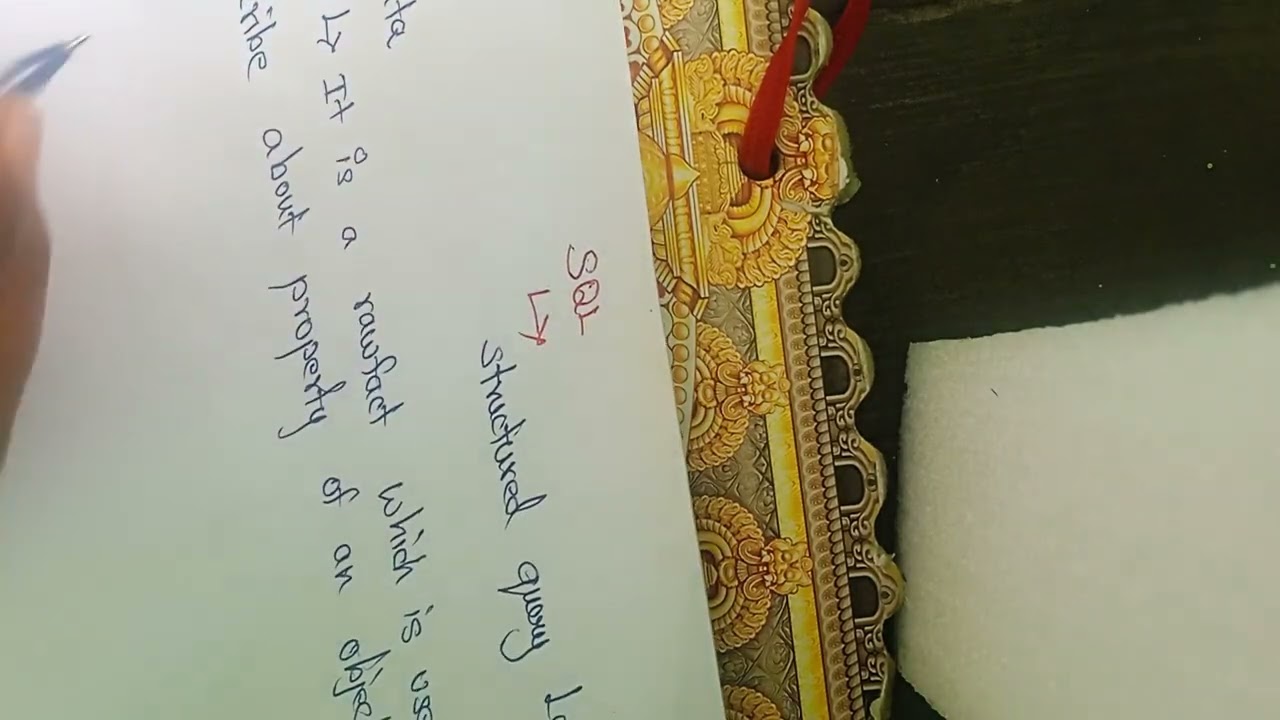 SQL
↳ structured query
↳ It is a rawfact which is
about property of an